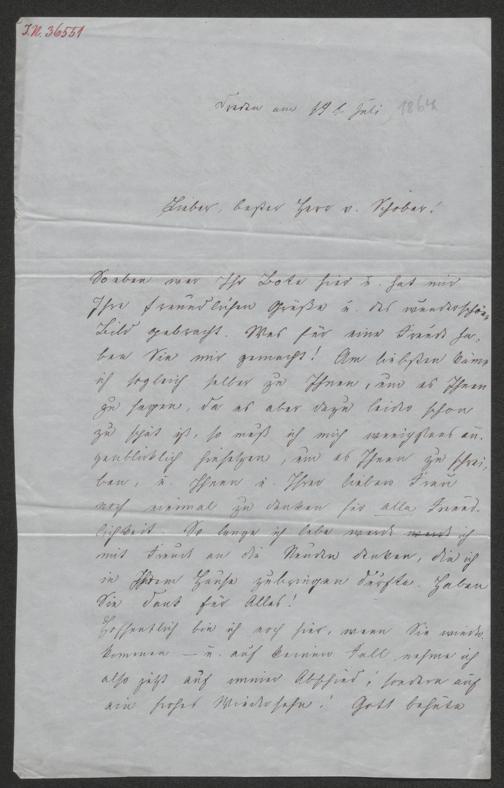 I.N. 36551
Dresden am 19t. Juli 1864
Lieber, bester Herr v. Schober!
Soeben war Ihr Bote hier u. hat mir
Ihre freundlichen Grüße u. das wunderschöne
Bild gebracht. Was für eine Freude ha-
ben Sie mir gemacht! Am liebsten käme
ich sogleich selber zu Ihnen, um es Ihnen
zu sagen, da es aber dazu leider schon
zu spät ist, so muß ich mich wenigstens au-
genblicklich hinsetzen, um es Ihnen zu schrei-
ben, u. Ihnen u. Ihrer lieben Frau
noch einmal zu danken für alle Freund-
lichkeit. So lange ich lebe werde ich
mit Freude an die Stunden denken, die ich
in Ihrem Hause zubringen durfte. Haben
Sie Dank für Alles!
Hoffentlich bin ich noch hier, wenn Sie wieder
kommen – u. auf keinen Fall nehme ich
also jetzt auf immer Abschied, sondern auf
ein frohes Wiedersehn! Gott behüte